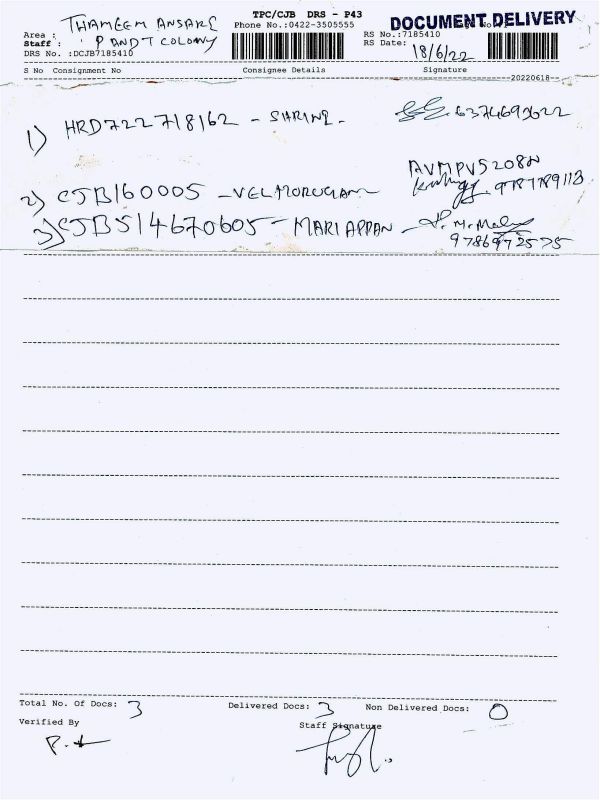 THAMEEM ANSARI
TPC/CJB DRS - P43
DOCUMENT DELIVERY
Area :
P AND T COLONY
Phone No.:0422-3505555
RS No.:7185410
Staff :
RS Date: 18/6/22
DRS No. :DCJB7185410
S No Consignment No Consignee Details Signature
20220618
1) HRD722718162 - SHRINE - 6374690622
AVMPV5208N
2) CJB160005 - VELMURUGAN 9787789113
3) CJB514670605 - MARIAPPAN -
9786972575
Total No. Of Docs: 3 Delivered Docs: 3 Non Delivered Docs: 0
Verified By Staff Signature